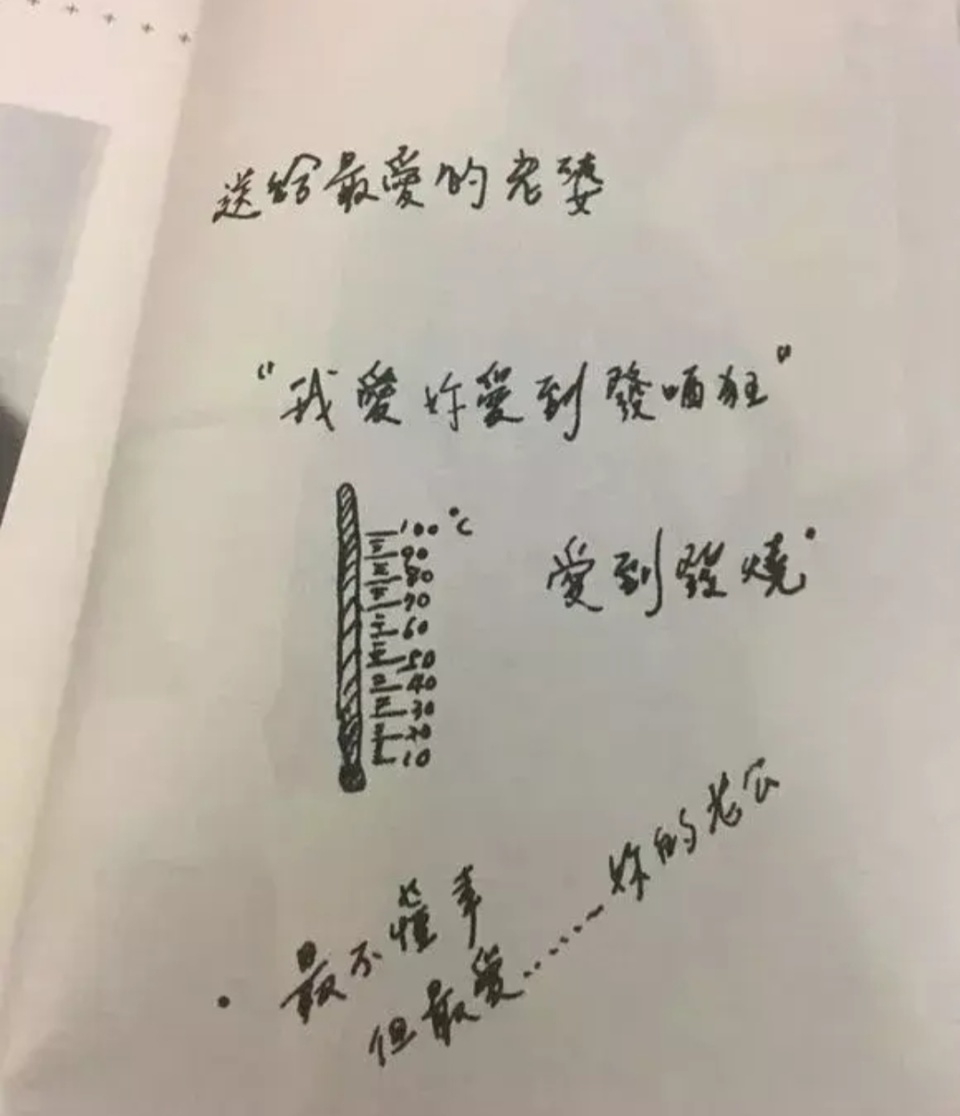 送給最愛的老婆
"我愛妳愛到發晒狂"
100 °C
90
80
70
60
50
40
30
20
10
愛到發燒"
最不懂事
但最愛……妳的老公